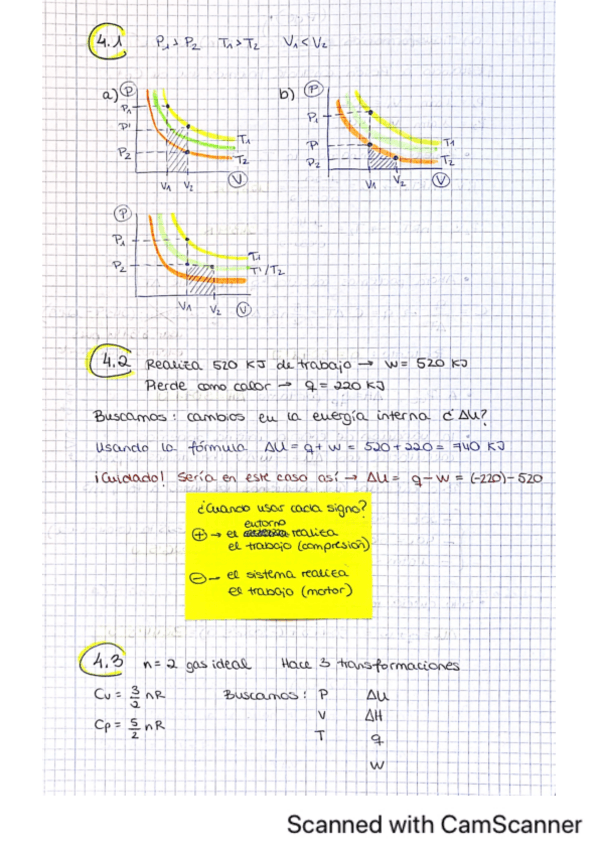 4.1 P₁ > P₂ T₁ > T₂ V₁ < V₂
a) P b) P
P₁ P₁
P' T₁ P' T₁
P₂ T₂ P₂ T₂
V₁ V₂ V V₁ V₂ V
P
P₁ T₁
P₂ T'/T₂
V₁ V₂ V
4.2 Realiza 520 KJ de trabajo → w = 520 KJ
Pierde como calor → q = 220 KJ
Buscamos: cambios en la energía interna ¿ΔU?
Usando la fórmula ΔU = q + w = 520 + 220 = 740 KJ
¡Cuidado! Sería en este caso así → ΔU = q - w = (-220) - 520
¿Cuando usar cada signo?
entorno
⊕ → el realiza
el trabajo (compresión)
⊖ → el sistema realiza
el trabajo (motor)
4.3 n = 2 gas ideal Hace 3 transformaciones
Cv = 3/2 nR Buscamos: P ΔU
V ΔH
Cp = 5/2 nR T q
w
Scanned with CamScanner